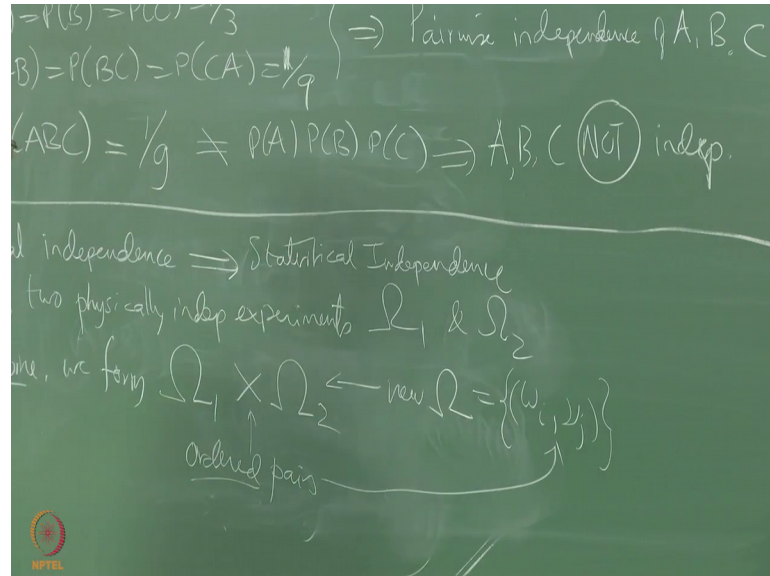 )=P(B)=P(C)=1/3
B)=P(BC)=P(CA)=1/9
} ⇒ Pairwise independence of A, B, C
(ABC) = 1/9 ≠ P(A) P(B) P(C) ⇒ A, B, C NOT indep.
al independence ⇒ Statistical Independence
two physically indep experiments Ω₁ & Ω₂
we form Ω₁ × Ω₂ ← new Ω = {(ω_i, ν_j)}
ordered pairs
NPTEL